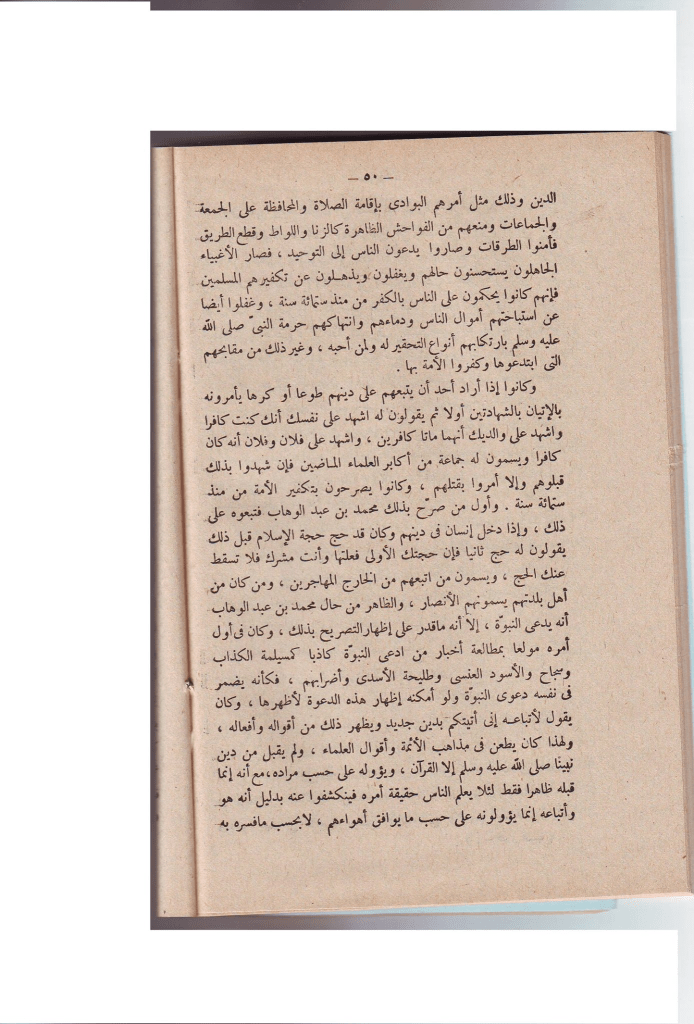 — ٥٠ —
الدين وذلك مثل أمرهم البوادى بإقامة الصلاة والمحافظة على الجمعة
والجماعات ومنعهم من الفواحش الظاهرة كالزنا واللواط وقطع الطريق
فأمنوا الطرقات وصاروا يدعون الناس إلى التوحيد ، فصار الأغبياء
الجاهلون يستحسنون حالهم ويغفلون ويذهلون عن تكفيرهم المسلمين
فإنهم كانوا يحكمون على الناس بالكفر من منذ ستمائة سنة ، وغفلوا أيضا
عن استباحتهم أموال الناس ودماءهم وانتهاكهم حرمة النبىّ صلى الله
عليه وسلم بارتكابهم أنواع التحقير له ولمن أحبه ، وغير ذلك من مقابحهم
التى ابتدعوها وكفروا الأمة بها .
وكانوا إذا أراد أحد أن يتبعهم على دينهم طوعا أو كرها يأمرونه
بالإتيان بالشهادتين أولا ثم يقولون له اشهد على نفسك أنك كنت كافرا
واشهد على والديك أنهما ماتا كافرين ، واشهد على فلان وفلان أنه كان
كافرا ويسمون له جماعة من أكابر العلماء الماضين فإن شهدوا بذلك
قبلوهم وإلا أمروا بقتلهم ، وكانوا يصرحون بتكفير الأمة من منذ
ستمائة سنة . وأول من صرّح بذلك محمد بن عبد الوهاب فتبعوه على
ذلك ، وإذا دخل إنسان فى دينهم وكان قد حج حجة الإسلام قبل ذلك
يقولون له حج ثانيا فإن حجتك الأولى فعلتها وأنت مشرك فلا تسقط
عنك الحج ، ويسمون من اتبعهم من الخارج المهاجرين ، ومن كان من
أهل بلدتهم يسمونهم الأنصار ، والظاهر من حال محمد بن عبد الوهاب
أنه يدعى النبوّة ، إلا أنه ماقدر على إظهار التصريح بذلك ، وكان فى أول
أمره مولعا بمطالعة أخبار من ادعى النبوّة كاذبا كمسيلمة الكذاب
وسجاح والأسود العنسى وطليحة الأسدى وأضرابهم ، فكأنه يضمر
فى نفسه دعوى النبوّة ولو أمكنه إظهار هذه الدعوة لأظهرها ، وكان
يقول لأتباعه إنى أتيتكم بدين جديد ويظهر ذلك من أقواله وأفعاله ،
ولهذا كان يطعن فى مذاهب الأئمة وأقوال العلماء ، ولم يقبل من دين
نبينا صلى الله عليه وسلم إلا القرآن ، ويؤوله على حسب مراده، مع أنه إنما
قبله ظاهرا فقط لئلا يعلم الناس حقيقة أمره فينكشفوا عنه بدليل أنه هو
وأتباعه إنما يؤولونه على حسب ما يوافق أهواءهم ، لابحسب مافسره به